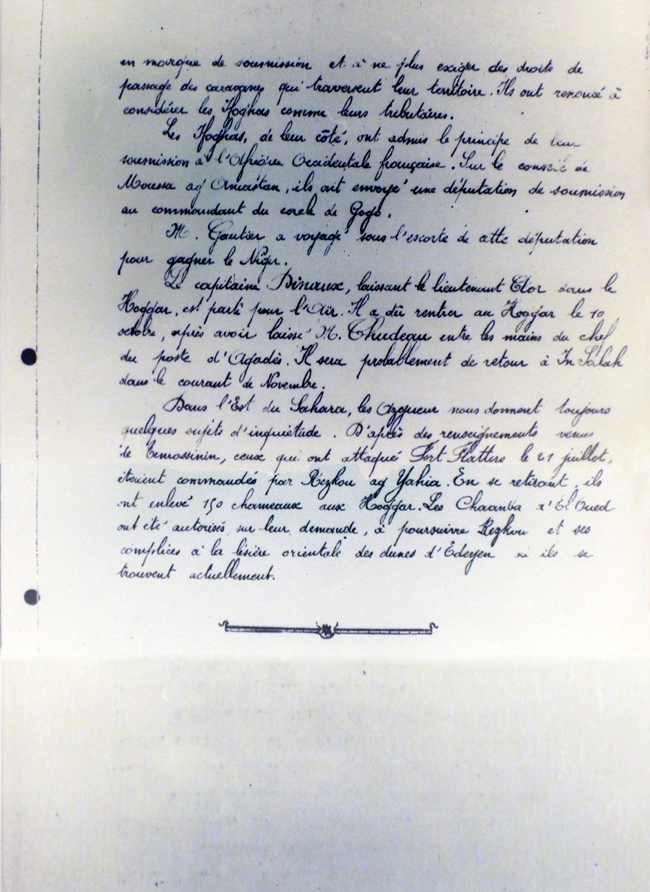 en marque de soumission et à ne plus exiger des droits de
passage des caravanes qui traversent leur territoire. Ils ont renoncé à
considérer les Ifoghas comme leurs tributaires.
Les Ifoghas, de leur côté, ont admis le principe de leur
soumission à l'Afrique Occidentale française. Sur le conseil de
Moussa ag Amastan, ils ont envoyé une députation de soumission
au commandant du cercle de Gogo.
M. Gautier a voyagé sous l'escorte de cette députation
pour gagner le Niger.
Le capitaine Dinaux, laissant le lieutenant Clor dans le
Hoggar, est parti pour l'Aïr. Il a dû rentrer au Hoggar le 10
octobre, après avoir laissé M. Chudeau entre les mains du chef
du poste d'Agadès. Il sera probablement de retour à In Salah
dans le courant de Novembre.
Dans l'Est du Sahara, les Azgueur nous donnent toujours
quelques sujets d'inquiétude. D'après des renseignements venus
de Temassinin, ceux qui ont attaqué Fort Flatters le 21 juillet,
étaient commandés par Rezkou ag Yahia. En se retirant, ils
ont enlevé 150 chameaux aux Hoggar. Les Chaanba d'El Oued
ont été autorisés, sur leur demande, à poursuivre Rezkou et ses
complices à la lisière orientale des dunes d'Edeyen où ils se
trouvent actuellement.